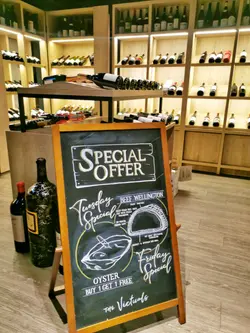 SPECIAL
OFFER
Tuesday
Special
BEEF WELLINGTON
OYSTER
BUY 1 GET 1 FREE
Friday
Special
THE Victuals